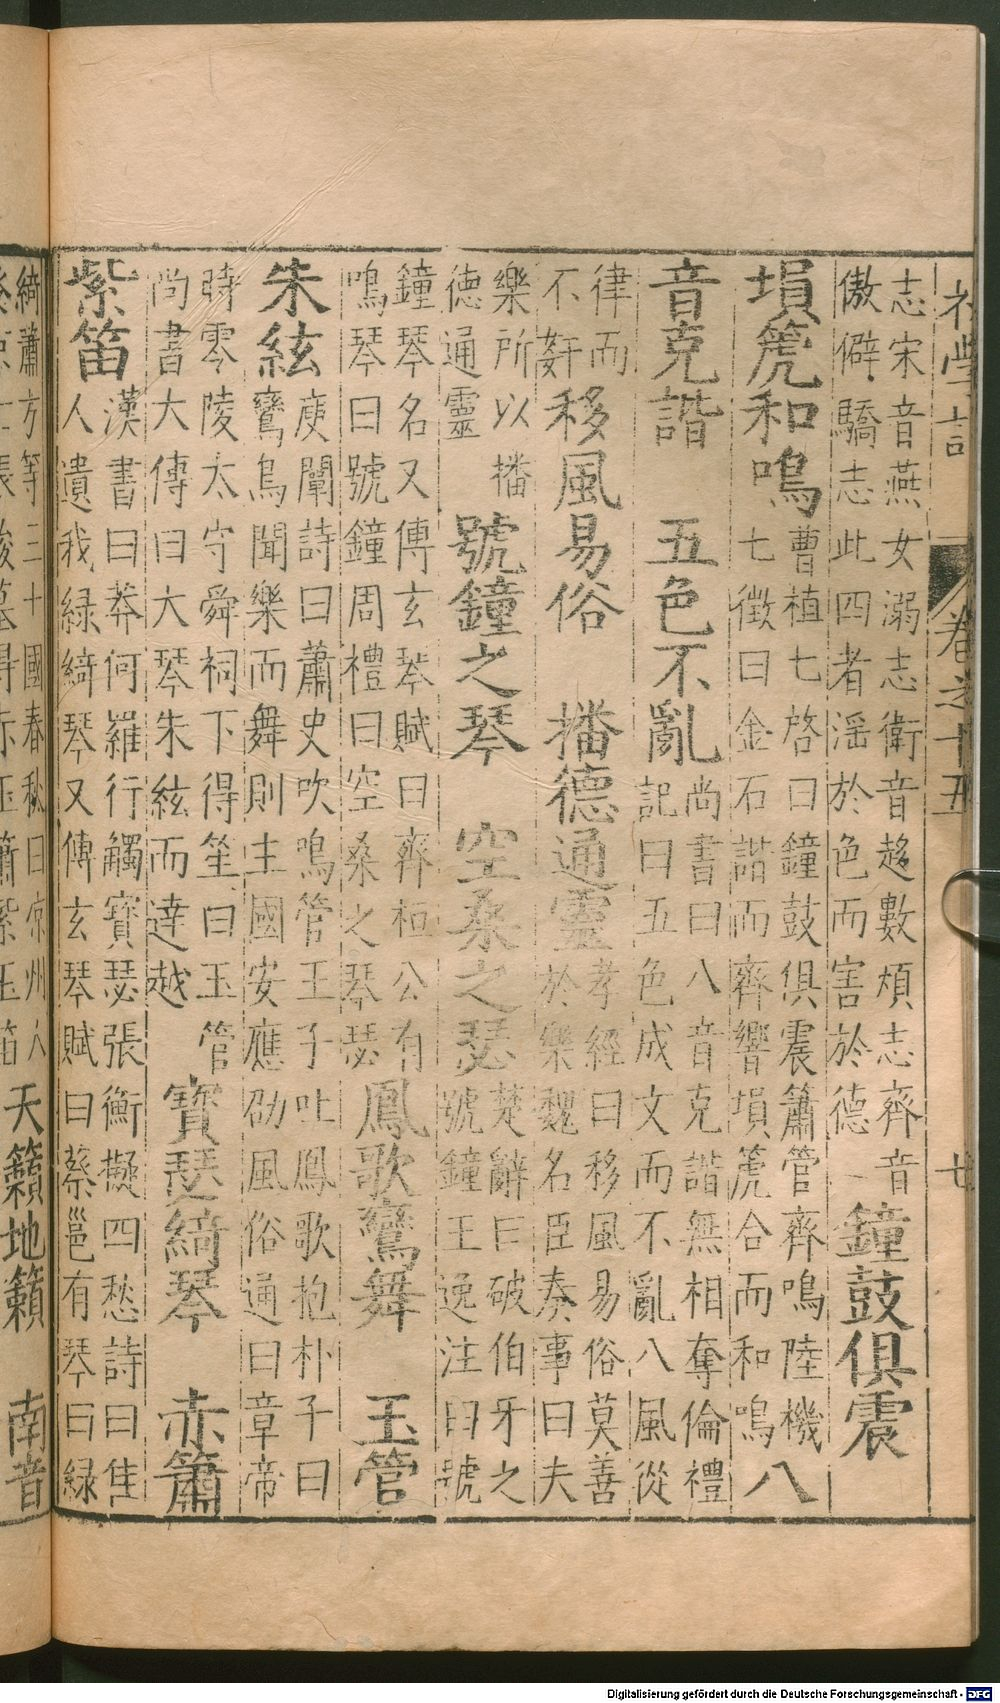 學
卷之十五
廿
志宋音燕女溺志衛音趍數煩志齊音
傲僻驕志此四者淫於色而害於德
鐘鼓俱震
塤箎和鳴
曹植七啓曰鐘鼓俱震簫管齊鳴陸機
七徵曰金石諧而齊響塤箎合而和鳴
八
音克諧 五色不亂
尚書曰八音克諧無相奪倫禮
記曰五色成文而不亂八風從
律而
不姧
移風易俗 播德通靈
孝經曰移風易俗莫善
於樂魏名臣奏事曰夫
樂所以播
德通靈
號鐘之琴 空桑之瑟
楚辭曰破伯牙之
號鐘王逸注曰號
鐘琴名又傅玄琴賦曰齊桓公有
鳴琴曰號鐘周禮曰空桑之琴瑟
鳳歌鸞舞 玉管
朱絃
庾闡詩曰蕭史吹鳴管王子吐鳳歌抱朴子曰
鸞鳥聞樂而舞則主國安應劭風俗通曰章帝
時零陵太守舜祠下得笙曰玉管
尚書大傳曰大琴朱絃而達越
寶瑟綺琴 赤簫
紫笛
漢書曰莽何羅行觸寶瑟張衡擬四愁詩曰佳
人遺我緑綺琴又傅玄琴賦曰蔡邕有琴曰緑
綺蕭方等三十國春秋曰凉州人
張駿墓得赤玉簫紫玉笛
天籟地籟 南音
Digitalisierung gefördert durch die Deutsche Forschungsgemeinschaft - DFG